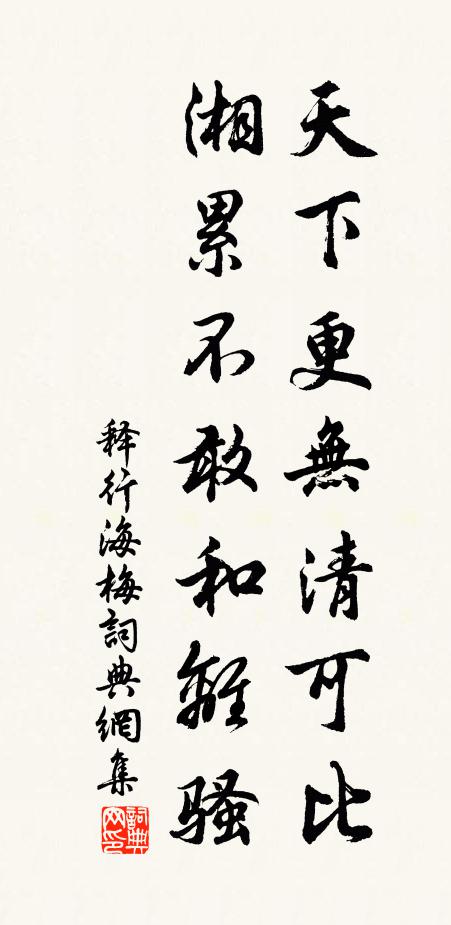 天下更無清可比
湘累不敢和離騷
释行海梅詞典網集
詞典网印